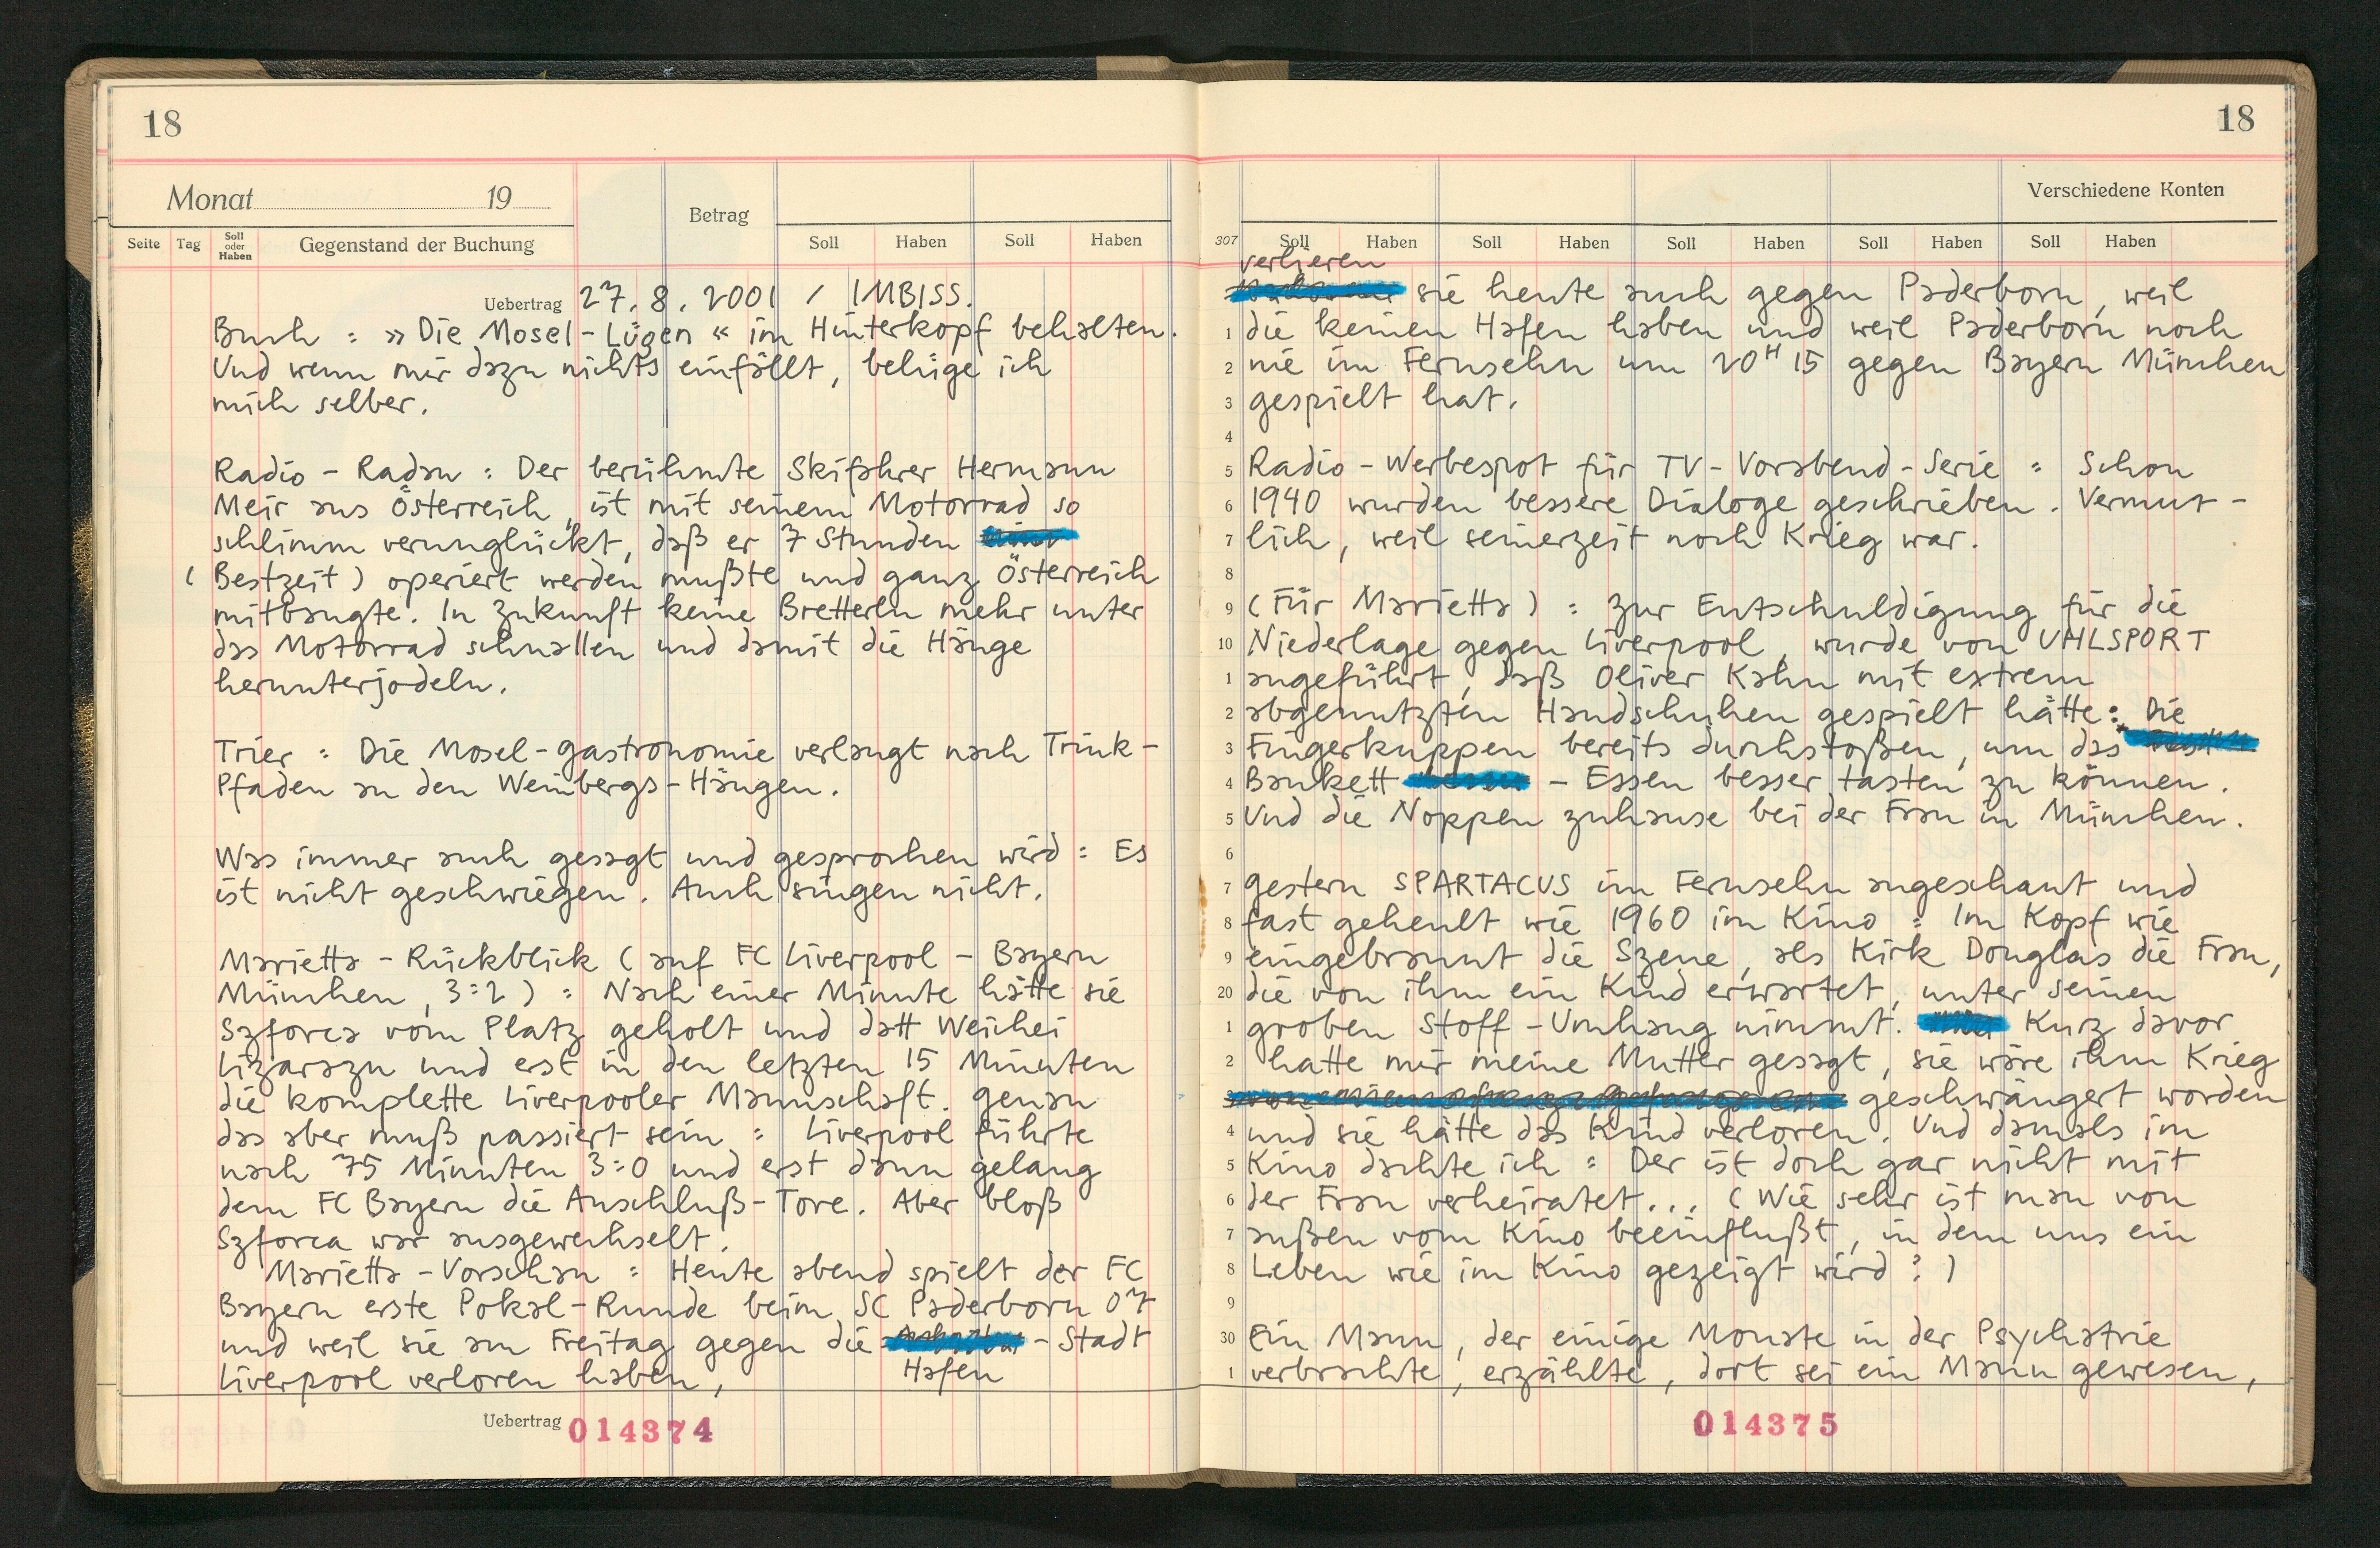 18
Monat 19
Betrag
Seite Tag Soll oder Haben Gegenstand der Buchung Soll Haben Soll Haben
Uebertrag 27. 8. 2001 / IMBISS.
Buch : »Die Mosel-Lügen« im Hinterkopf behalten.
Und wenn mir dazu nichts einfällt, belüge ich
mich selber.
Radio - Radau : Der berühmte Skifahrer Hermann
Meir aus Österreich, ist mit seinem Motorrad so
schlimm verunglückt, daß er 7 Stunden
(Bestzeit) operiert werden mußte und ganz Österreich
mitbangte. In Zukunft keine Bretterln mehr unter
das Motorrad schnallen und damit die Hänge
herunterjodeln.
Trier : Die Mosel-Gastronomie verlangt nach Trink-
Pfaden an den Weinbergs-Hängen.
Was immer auch gesagt und gesprochen wird : Es
ist nicht geschwiegen. Auch singen nicht.
Marietta - Rückblick (auf FC Liverpool - Bayern
München, 3:2) : Nach einer Minute hätte sie
Szforca vom Platz geholt und datt Weichei
Lizarazu und erst in den letzten 15 Minuten
die komplette Liverpooler Mannschaft. Genau
das aber muß passiert sein : Liverpool führte
nach 75 Minuten 3:0 und erst dann gelang
dem FC Bayern die Anschluß-Tore. Aber bloß
Szforca war ausgewechselt.
Marietta - Vorschau : Heute abend spielt der FC
Bayern erste Pokal-Runde beim SC Paderborn 07
und weil sie am Freitag gegen die - Stadt
Hafen
Liverpool verloren haben,
Uebertrag 014374
18
Verschiedene Konten
307 Soll Haben Soll Haben Soll Haben Soll Haben Soll Haben
verlieren
sie heute auch gegen Paderborn, weil
1 die keinen Hafen haben und weil Paderborn noch
2 nie im Fernsehn um 20H15 gegen Bayern München
3 gespielt hat.
4
5 Radio - Werbespot für TV - Vorabend - Serie : Schon
6 1940 wurden bessere Dialoge geschrieben. Vermut-
7 lich, weil seinerzeit noch Krieg war.
8
9 (Für Marietta) : Zur Entschuldigung für die
10 Niederlage gegen Liverpool, wurde von UHLSPORT
1 angeführt, daß Oliver Kahn mit extrem
2 abgenutzten Handschuhen gespielt hätte : Die
3 Fingerkuppen bereits durchstoßen, um das
4 Bankett - Essen besser tasten zu können.
5 Und die Noppen zuhause bei der Frau in München.
6
7 Gestern SPARTACUS im Fernsehn angeschaut und
8 fast geheult wie 1960 im Kino : Im Kopf wie
9 eingebrannt die Szene, als Kirk Douglas die Frau,
20 die von ihm ein Kind erwartet, unter seinen
1 groben Stoff-Umhang nimmt. Kurz davor
2 hatte mir meine Mutter gesagt, sie wäre ihm Krieg
3 geschwängert worden
4 und sie hätte das Kind verloren. Und damals im
5 Kino dachte ich : Der ist doch gar nicht mit
6 der Frau verheiratet... (Wie sehr ist man von
7 außen vom Kino beeinflußt, in dem uns ein
8 Leben wie im Kino gezeigt wird?)
9
30 Ein Mann, der einige Monate in der Psychatrie
1 verbrachte, erzählte, dort sei ein Mann gewesen,
014375